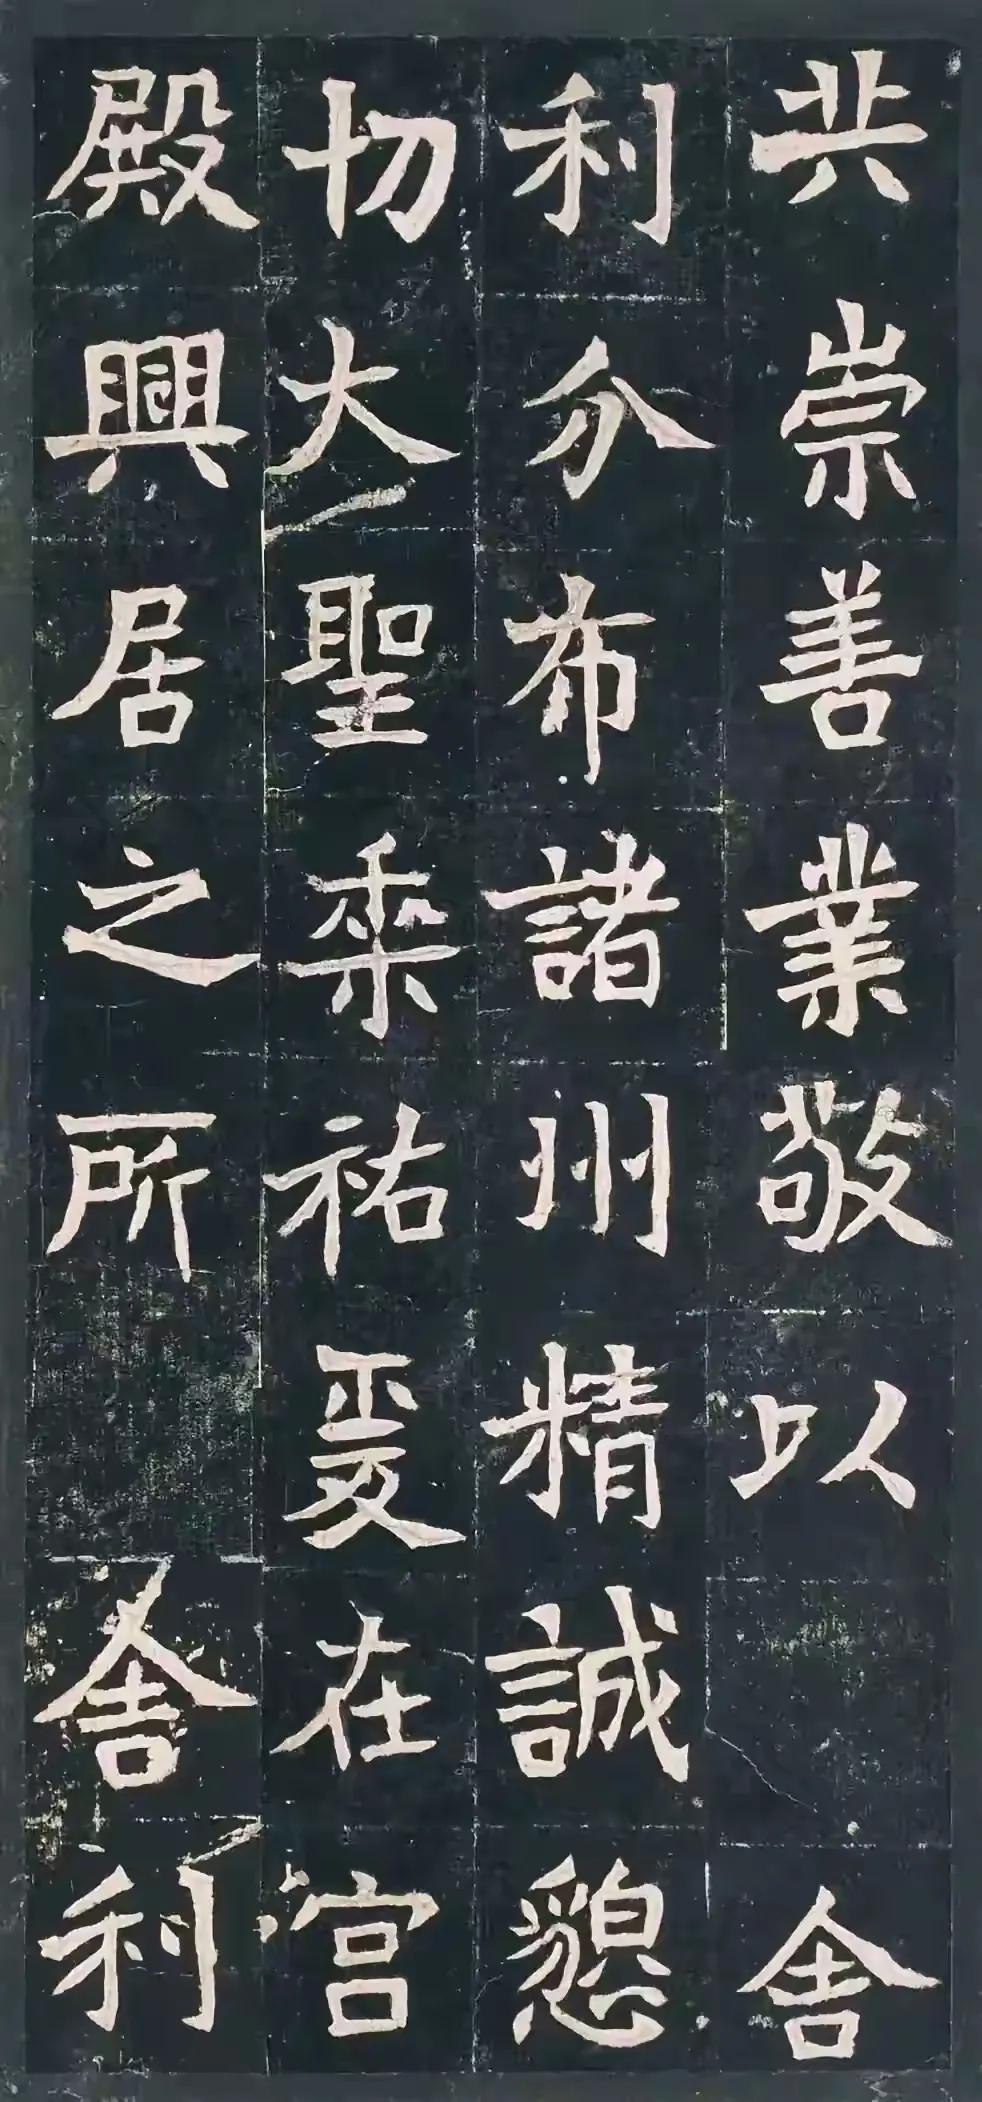 共崇善業敬以舍
利分布諸州精誠懇
切大聖垂祐爰在宮
殿興居之所舍利